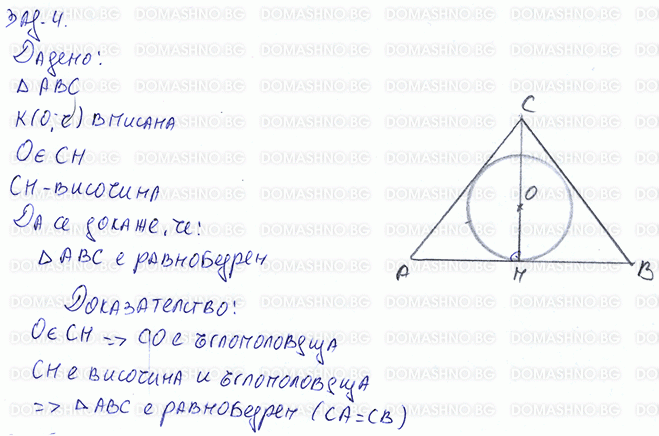 Зад. 4.
Дадено:
△ABC
k(O; r) вписана
O∈CH
CH - височина
Да се докаже, че:
△ABC е равнобедрен
Доказателство:
O∈CH => CO е ъглополовяща
CH е височина и ъглополовяща
=> △ABC е равнобедрен (CA=CB)
C
O
A
H
B
DOMASHNO.BG